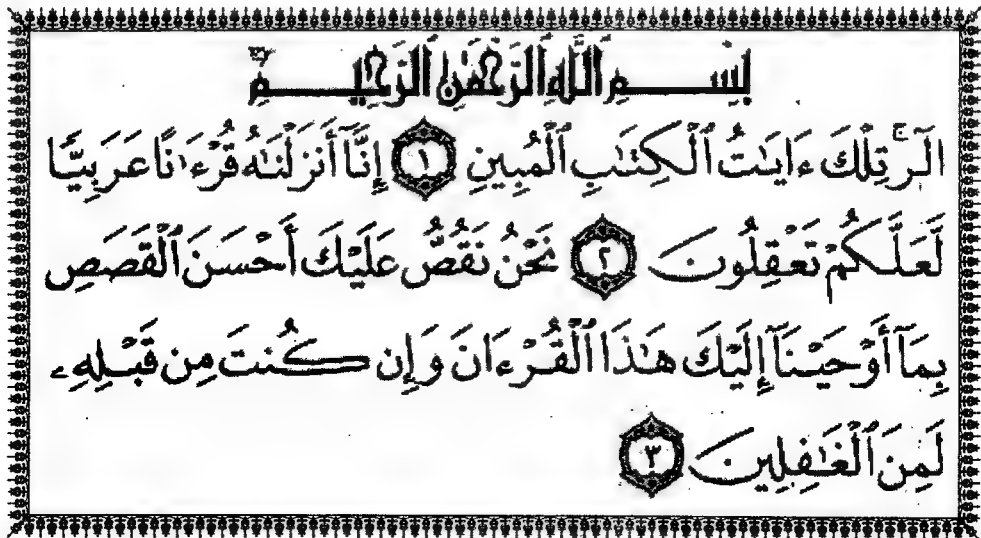 بِسْمِ ٱللَّهِ ٱلرَّحْمَٰنِ ٱلرَّحِيمِ
الٓرۚ تِلْكَ ءَايَٰتُ ٱلْكِتَٰبِ ٱلْمُبِينِ ١ إِنَّآ أَنزَلْنَٰهُ قُرْءَٰنًا عَرَبِيًّا
لَّعَلَّكُمْ تَعْقِلُونَ ٢ نَحْنُ نَقُصُّ عَلَيْكَ أَحْسَنَ ٱلْقَصَصِ
بِمَآ أَوْحَيْنَآ إِلَيْكَ هَٰذَا ٱلْقُرْءَانَ وَإِن كُنتَ مِن قَبْلِهِۦ
لَمِنَ ٱلْغَٰفِلِينَ ٣